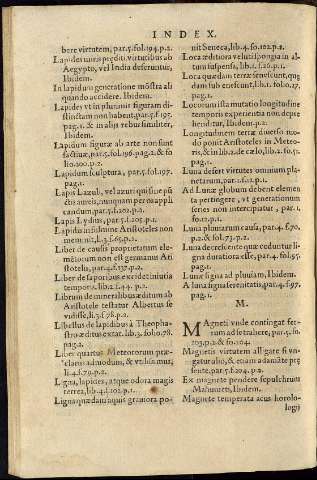 INDEX.
bere virtutem, par.5.fol.194.p.2.
Lapides miræ præditi virtutibus ab
Aegypto, vel India deferuntur,
Ibidem.
In lapidum generatione mõstra ali
quando accidere. Ibidem.
Lapides vt in plurimũ figuram di-
stinctam non habent, par.5.f.195.
pag.1. & in alijs rebus similiter,
Ibidem.
Lapidum figuræ ab arte non sunt
factitiæ, par.5.fol.196.pag.2. & fo
lio.200.p.2.
Lapidum sculptura, par.5.f.197.
pag.1.
Lapis Lazuli, vel azuri quĩ sine pũ
ctis aureis, nunquam pero appli
candum, par.5.f.202.p.2.
Lapis Lydius, par.5.f.205.p.1.
Lapidis insulminæ Aristoteles non
meminit, li.3.f.65.p.1.
Liber de causis proprietatum ele-
mẽtorum non est germanus Ari
stotelis, par.4.f.137.p.2.
Liber de saporibus exædet iniuria
temporis, lib.2.f.44.p.1.
Librum de mineralibus æditum ab
Aristotele testatur Albertus se
vidisse, li.3.f.78.p.2.
Libellus de lapidibus à Theophra-
stro æditus extat. lib.3.folio.78.
pag.2.
Liber quartus Meteororum præ-
clarus admodum, & vtilis maxi,
li.4.f.79.p.2.
Ligna, lapides, atque odora magis
terrea, lib.4.f.102.p.1.
Ligna quædam aquis grauiora po-
nit Seneca, lib.4.fo.102.p.2.
Loca æditiora velut spongia in al-
tum suspensa, lib.2.f.26.p.1.
Loca quædam terræ senescunt, quę
dam iubenescunt, lib.1.folio.27,
pag.1.
Locorum ista mutatio lõgitudine
temporis experientia non depre
henditur, Ibidem.
Longitudinem terræ diuerso mo-
do ponit Aristoteles in Meteo-
ris, & in lib.2.de cælo, lib.2.fo.51.
pag.1.
Luna desert virtutes omnium pla-
netarum, par.1.f.12.p.1.
Ad Lunæ globum debent elemen
ta pertingere, vt generationum
series non intercipiatur, par.1,
fo.12.p.1.
Luna pluuiarum causa, par.4.f.70.
p.2.& fol.73.p.2.
Luna decrescente quæ ceduntur li
gna duratiora esse, par.4.fol.95.
pag.1.
Lunæ signa ad pluuiam, Ibidem.
A luna signa serenitatis, par.4.f.97.
pag.1.
M.
MAgneti vnde contingat fer-
rum ad se trahere, par.5.fo.
103.p.2.& fo.104.
Magnetis virtutem alligare si vn-
gatur alio, & etiam adamãte præ
sente, par.5.f.204.p.2.
Ex magnete pendere sepulchrum
Mahumetis, Ibidem.
Magnete temperata acus horolo-
logij